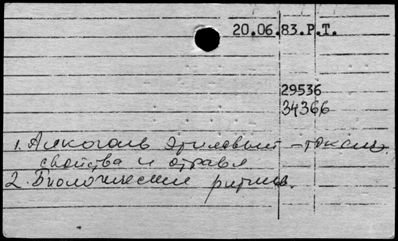 20.06.83.Р.Т.
29536
34366
1. Алкоголь этиловый - токсич.
свойства и отравл
2. Биологические ритмы.